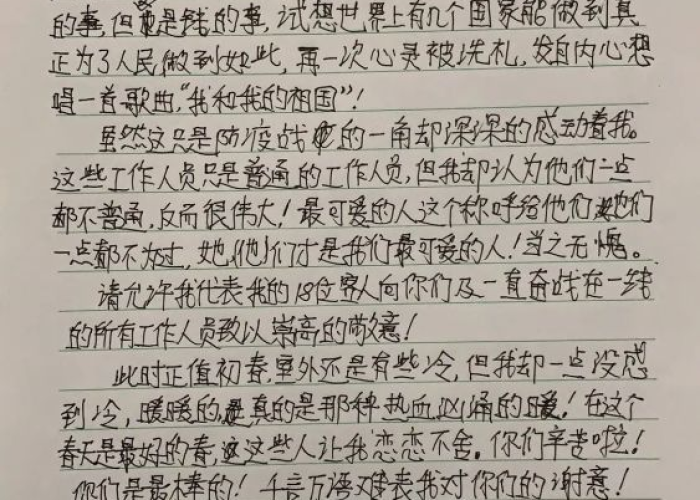 的事,但也是钱的事,试想世界上有几个国家能做到真
正为了人民做到如此,再一次心灵被洗礼,发自内心想
唱一首歌曲,“我和我的祖国”!
虽然这只是防疫战的一角却深深的感动着我。
这些工作人员只是普通的工作人员,但我却认为他们一点
都不普通,反而很伟大!最可爱的人这个称呼给他们她们
一点都不为过,她(他)们才是我们最可爱的人!当之无愧。
请允许我代表我的18位家人向你们及一直奋战在一线
的所有工作人员致以崇高的敬意!
此时正值初春,室外还是有些冷,但我却一点没感
到冷,暖暖的,是真的是那种热血汹涌的暖!在这个
春天是最好的春,这些人让我恋恋不舍。你们辛苦啦!
你们是最棒的!千言万语难表我对你们的谢意!